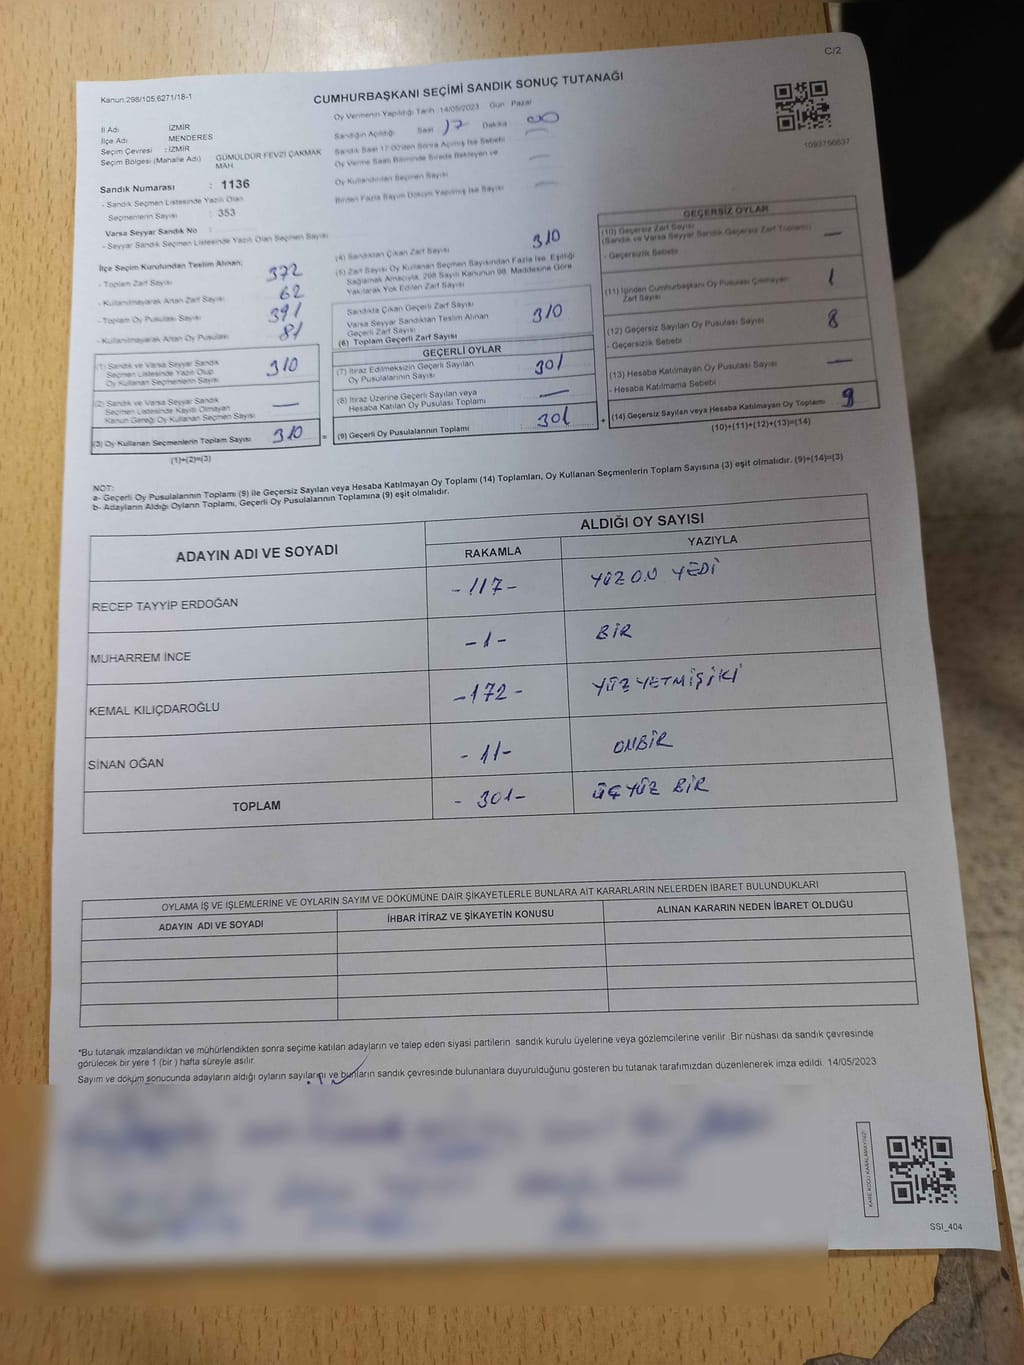 C/2
Kanun:298/105,6271/18-1
CUMHURBAŞKANI SEÇİMİ SANDIK SONUÇ TUTANAĞI
Oy Vermenin Yapıldığı Tarih :14/05/2023 Gün : Pazar
İl Adı : İZMİR
İlçe Adı : MENDERES
Seçim Çevresi : İZMİR
Seçim Bölgesi (Mahalle Adı) : GÜMÜLDÜR FEVZİ ÇAKMAK MAH.
Sandığın Açıldığı Saat 17 Dakika 00
Sandık Saat 17:00'den Sonra Açılmış İse Sebebi
Oy Verme Saati Bitiminde Sırada Bekleyen ve
Oy Kullandırılan Seçmen Sayısı
Birden Fazla Sayım Döküm Yapılmış İse Sayısı
1093756637
Sandık Numarası : 1136
- Sandık Seçmen Listesinde Yazılı Olan
Seçmenlerin Sayısı : 353
Varsa Seyyar Sandık No :
- Seyyar Sandık Seçmen Listesinde Yazılı Olan Seçmen Sayısı
İlçe Seçim Kurulundan Teslim Alınan;
- Toplam Zarf Sayısı 372
- Kullanılmayarak Artan Zarf Sayısı 62
- Toplam Oy Pusulası Sayısı 391
- Kullanılmayarak Artan Oy Pusulası 81
(1) Sandık ve Varsa Seyyar Sandık
Seçmen Listesinde Yazılı Olup
Oy Kullanan Seçmenlerin Sayısı 310
(2) Sandık ve Varsa Seyyar Sandık
Seçmen Listesinde Kayıtlı Olmayan
Kanun Gereği Oy Kullanan Seçmen Sayısı —
(3) Oy Kullanan Seçmenlerin Toplam Sayısı 310
(1)+(2)=(3)
(4) Sandıktan Çıkan Zarf Sayısı 310
(5) Zarf Sayısı Oy Kullanan Seçmen Sayısından Fazla İse, Eşitliği
Sağlamak Amacıyla, 298 Sayılı Kanunun 98. Maddesine Göre
Yakılarak Yok Edilen Zarf Sayısı
Sandıkta Çıkan Geçerli Zarf Sayısı 310
Varsa Seyyar Sandıktan Teslim Alınan
Geçerli Zarf Sayısı
(6) Toplam Geçerli Zarf Sayısı
GEÇERLİ OYLAR
(7) İtiraz Edilmeksizin Geçerli Sayılan
Oy Pusulalarının Sayısı 301
(8) İtiraz Üzerine Geçerli Sayılan veya
Hesaba Katılan Oy Pusulası Toplamı —
(9) Geçerli Oy Pusulalarının Toplamı 301
GEÇERSİZ OYLAR
(10) Geçersiz Zarf Sayısı
(Sandık ve Varsa Seyyar Sandık Geçersiz Zarf Toplamı) —
- Geçersizlik Sebebi
(11) İçinden Cumhurbaşkanı Oy Pusulası Çıkmayan
Zarf Sayısı 1
(12) Geçersiz Sayılan Oy Pusulası Sayısı 8
- Geçersizlik Sebebi
(13) Hesaba Katılmayan Oy Pusulası Sayısı —
- Hesaba Katılmama Sebebi
(14) Geçersiz Sayılan veya Hesaba Katılmayan Oy Toplamı 9
(10)+(11)+(12)+(13)=(14)
NOT:
a- Geçerli Oy Pusulalarının Toplamı (9) ile Geçersiz Sayılan veya Hesaba Katılmayan Oy Toplamı (14) Toplamları, Oy Kullanan Seçmenlerin Toplam Sayısına (3) eşit olmalıdır. (9)+(14)=(3)
b- Adayların Aldığı Oyların Toplamı, Geçerli Oy Pusulalarının Toplamına (9) eşit olmalıdır.
ADAYIN ADI VE SOYADI ALDIĞI OY SAYISI
RAKAMLA YAZIYLA
RECEP TAYYİP ERDOĞAN -117- YÜZ ON YEDİ
MUHARREM İNCE -1- BİR
KEMAL KILIÇDAROĞLU -172- YÜZ YETMİŞ İKİ
SİNAN OĞAN -11- ONBİR
TOPLAM -301- ÜÇYÜZ BİR
OYLAMA İŞ VE İŞLEMLERİNE VE OYLARIN SAYIM VE DÖKÜMÜNE DAİR ŞİKAYETLERLE BUNLARA AİT KARARLARIN NELERDEN İBARET BULUNDUKLARI
ADAYIN ADI VE SOYADI İHBAR İTİRAZ VE ŞİKAYETİN KONUSU ALINAN KARARIN NEDEN İBARET OLDUĞU
*Bu tutanak imzalandıktan ve mühürlendikten sonra seçime katılan adayların ve talep eden siyasi partilerin sandık kurulu üyelerine veya gözlemcilerine verilir. Bir nüshası da sandık çevresinde
görülecek bir yere 1 (bir ) hafta süreyle asılır.
Sayım ve döküm sonucunda adayların aldığı oyların sayılarını ve bunların sandık çevresinde bulunanlara duyurulduğunu gösteren bu tutanak tarafımızdan düzenlenerek imza edildi. 14/05/2023
KARE KODU KARALAMAYINIZ!
SSI_404